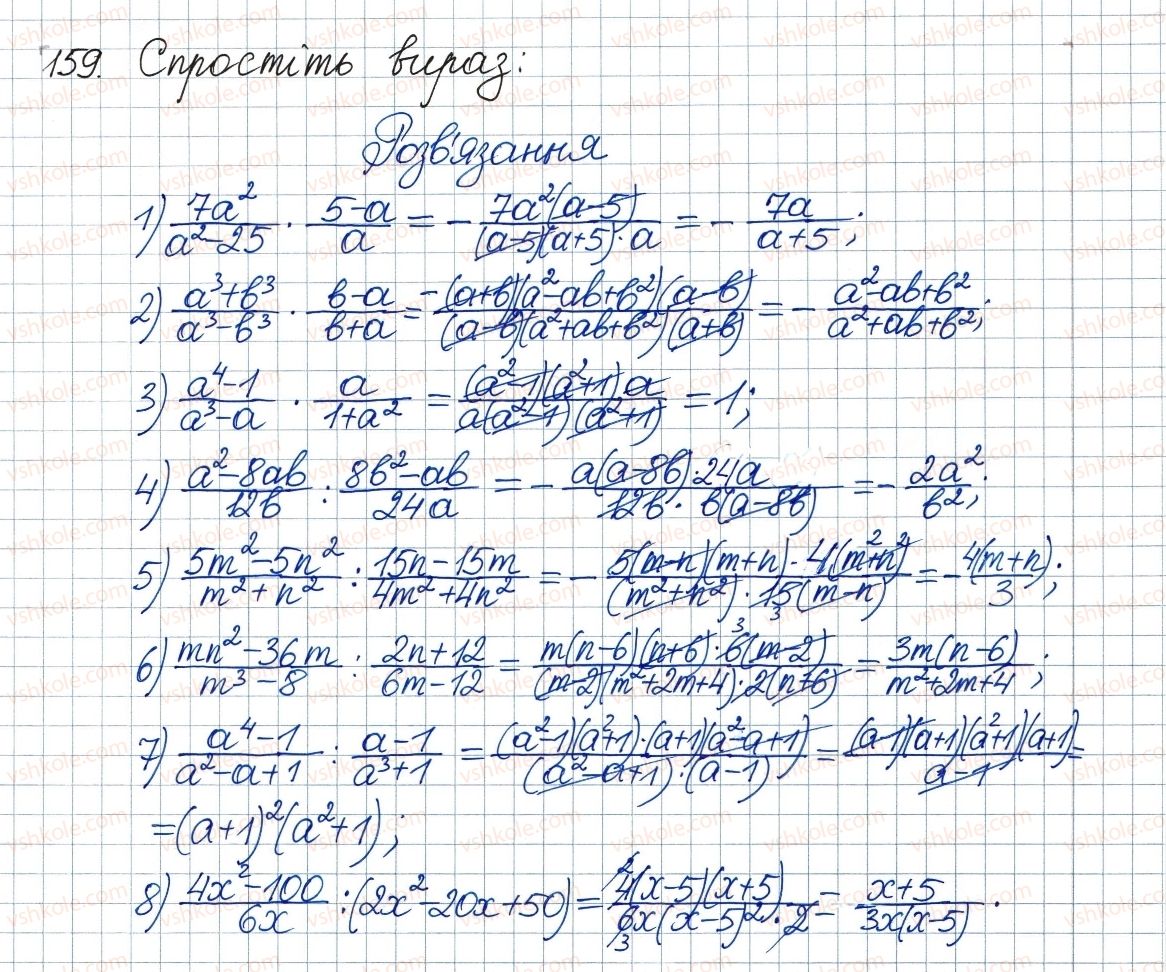 159. Спростіть вираз:
Розв'язання
1) 7a²/(a²-25) · (5-a)/a = - 7a²(a-5)/((a-5)(a+5)·a) = - 7a/(a+5);
2) (a³+b³)/(a³-b³) · (b-a)/(b+a) = -(a+b)(a²-ab+b²)(a-b)/((a-b)(a²+ab+b²)(a+b)) = - (a²-ab+b²)/(a²+ab+b²);
3) (a⁴-1)/(a³-a) · a/(1+a²) = (a²-1)(a²+1)a/(a(a²-1)(a²+1)) = 1;
4) (a²-8ab)/12b : (8b²-ab)/24a = - a(a-8b)·24a/(12b·b(a-8b)) = - 2a²/b²;
5) (5m²-5n²)/(m²+n²) : (15n-15m)/(4m²+4n²) = - 5(m-n)(m+n)·4(m²+n²)/((m²+n²)·15(m-n)) = - 4(m+n)/3;
6) (mn²-36m)/(m³-8) : (2n+12)/(6m-12) = m(n-6)(n+6)·6(m-2)/((m-2)(m²+2m+4)·2(n+6)) = 3m(n-6)/(m²+2m+4);
7) (a⁴-1)/(a²-a+1) : (a-1)/(a³+1) = (a²-1)(a²+1)·(a+1)(a²-a+1)/((a²-a+1)·(a-1)) = (a-1)(a+1)(a²+1)(a+1)/(a-1) =
=(a+1)²(a²+1);
8) (4x²-100)/6x : (2x²-20x+50) = 4(x-5)(x+5)/(6x(x-5)²·2) = (x+5)/(3x(x-5)).